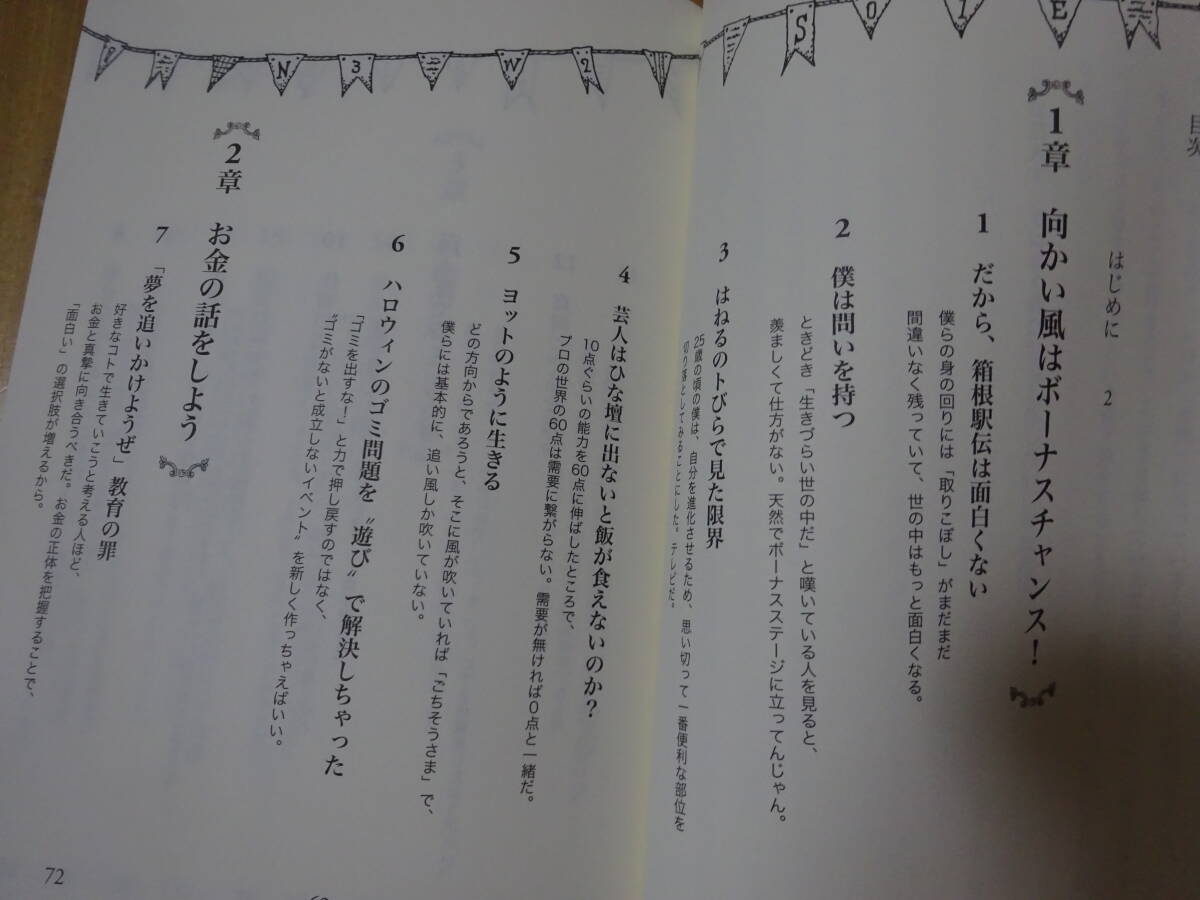 目次
はじめに 2
1章 向かい風はボーナスチャンス！
1 だから、箱根駅伝は面白くない
僕らの身の回りには「取りこぼし」がまだまだ
間違いなく残っていて、世の中はもっと面白くなる。
2 僕は問いを持つ
ときどき「生きづらい世の中だ」と嘆いている人を見ると、
羨ましくて仕方がない。天然でボーナスステージに立ってんじゃん。
3 はねるのトびらで見た限界
25歳の頃の僕は、自分を進化させるため、思い切って一番便利な部位を
切り落としてみることにした。テレビだ。
4 芸人はひな壇に出ないと飯が食えないのか？
10点ぐらいの能力を60点に伸ばしたところで、
プロの世界の60点は需要に繋がらない。需要が無ければ0点と一緒だ。
5 ヨットのように生きる
どの方向からであろうと、そこに風が吹いていれば「ごちそうさま」で、
僕らには基本的に、追い風しか吹いていない。
6 ハロウィンのゴミ問題を〝遊び〟で解決しちゃった
「ゴミを出すな！」と力で押し戻すのではなく、
〝ゴミがないと成立しないイベント〟を新しく作っちゃえばいい。
2章 お金の話をしよう
7 「夢を追いかけようぜ」教育の罪
好きなコトで生きていこうと考える人ほど、
お金と真摯に向き合うべきだ。お金の正体を把握することで、
「面白い」の選択肢が増えるから。
72
SOLE
N3
W2